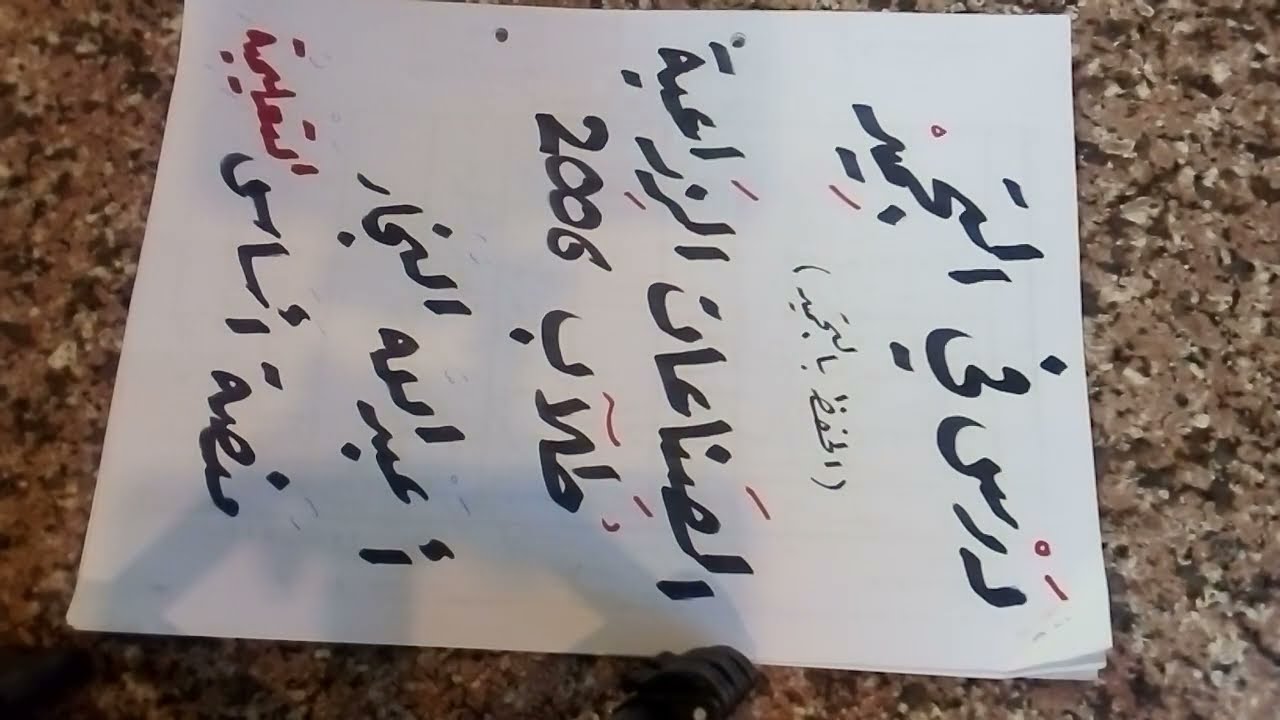 دَرْس في التجميْد
(الحفظ بالتجميد)
الصَناعات الزِراعية
طُلّاب 2006
أ عبد الله النجار
منصة أساس التعليمية